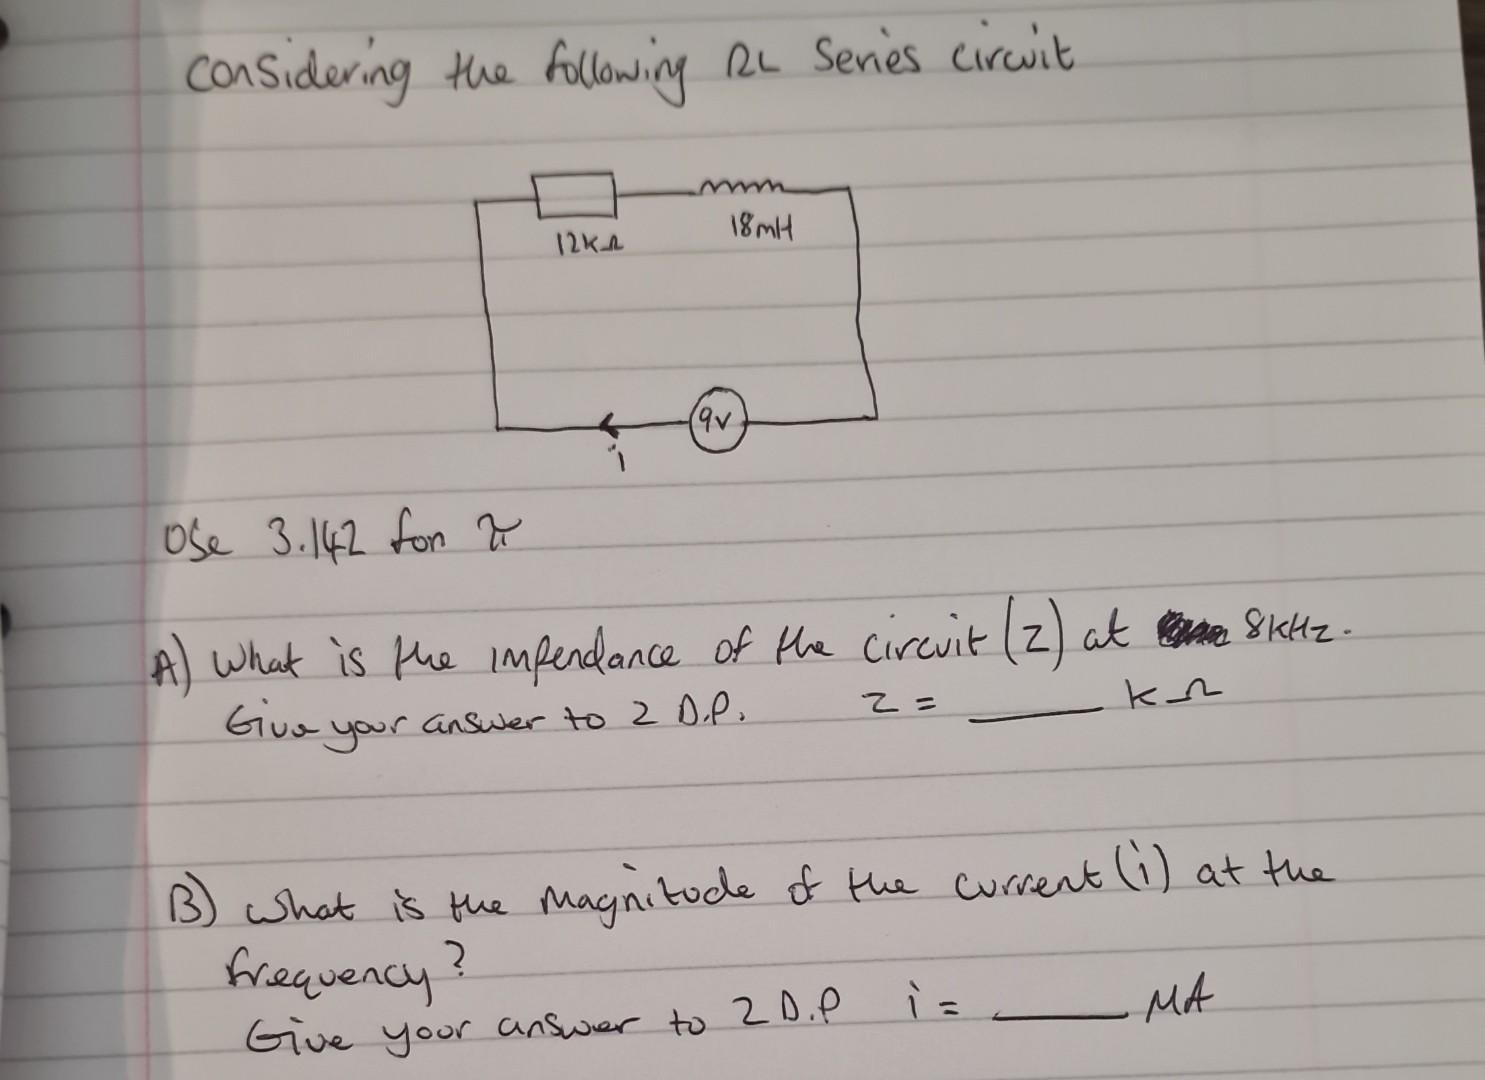 Considering the following RL Series circuit
12kΩ
18mH
9v
i
Use 3.142 for π
A) What is the impendance of the circuit (Z) at 8kHz.
Give your answer to 2 D.P. Z = ____ kΩ
B) What is the Magnitude of the current (i) at the
frequency?
Give your answer to 2 D.P i = ____ MA